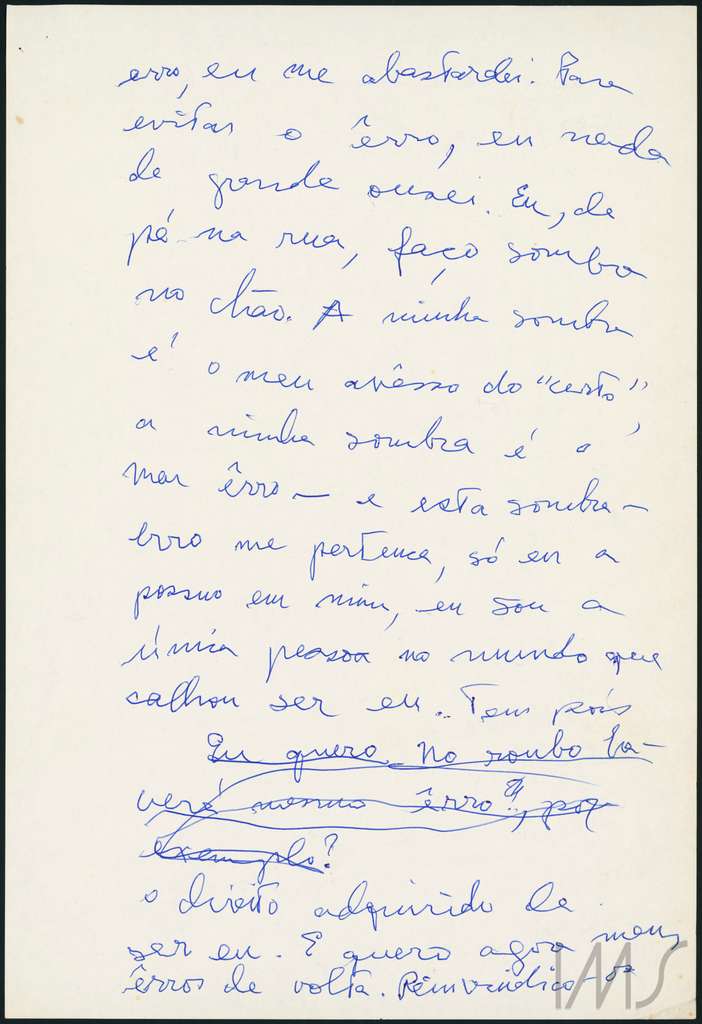 erro, eu me abastardei. Para
evitar o êrro, eu nada
de grande ousei. Eu, de
pé na rua, faço sombra
no chão. A minha sombra
é o meu avêsso do "certo",
a minha sombra é o
meu êrro — e esta sombra-
erro me pertence, só eu a
possuo em mim, eu sou a
única pessoa no mundo que
calhou ser eu. Tem pois
Eu quero No roubo ha-
verá mesmo êrro?, por
exemplo?
o direito adquirido de
ser eu. E quero agora meus
êrros de volta. Reinvindico-os
IMS